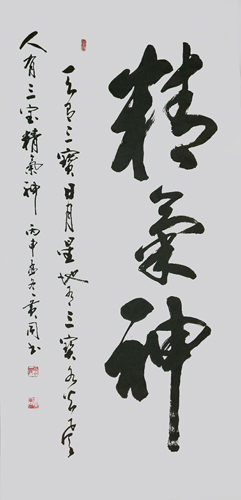 精氣神
天有三寶日月星地有三寶水火風
人有三宝精氣神 丙申